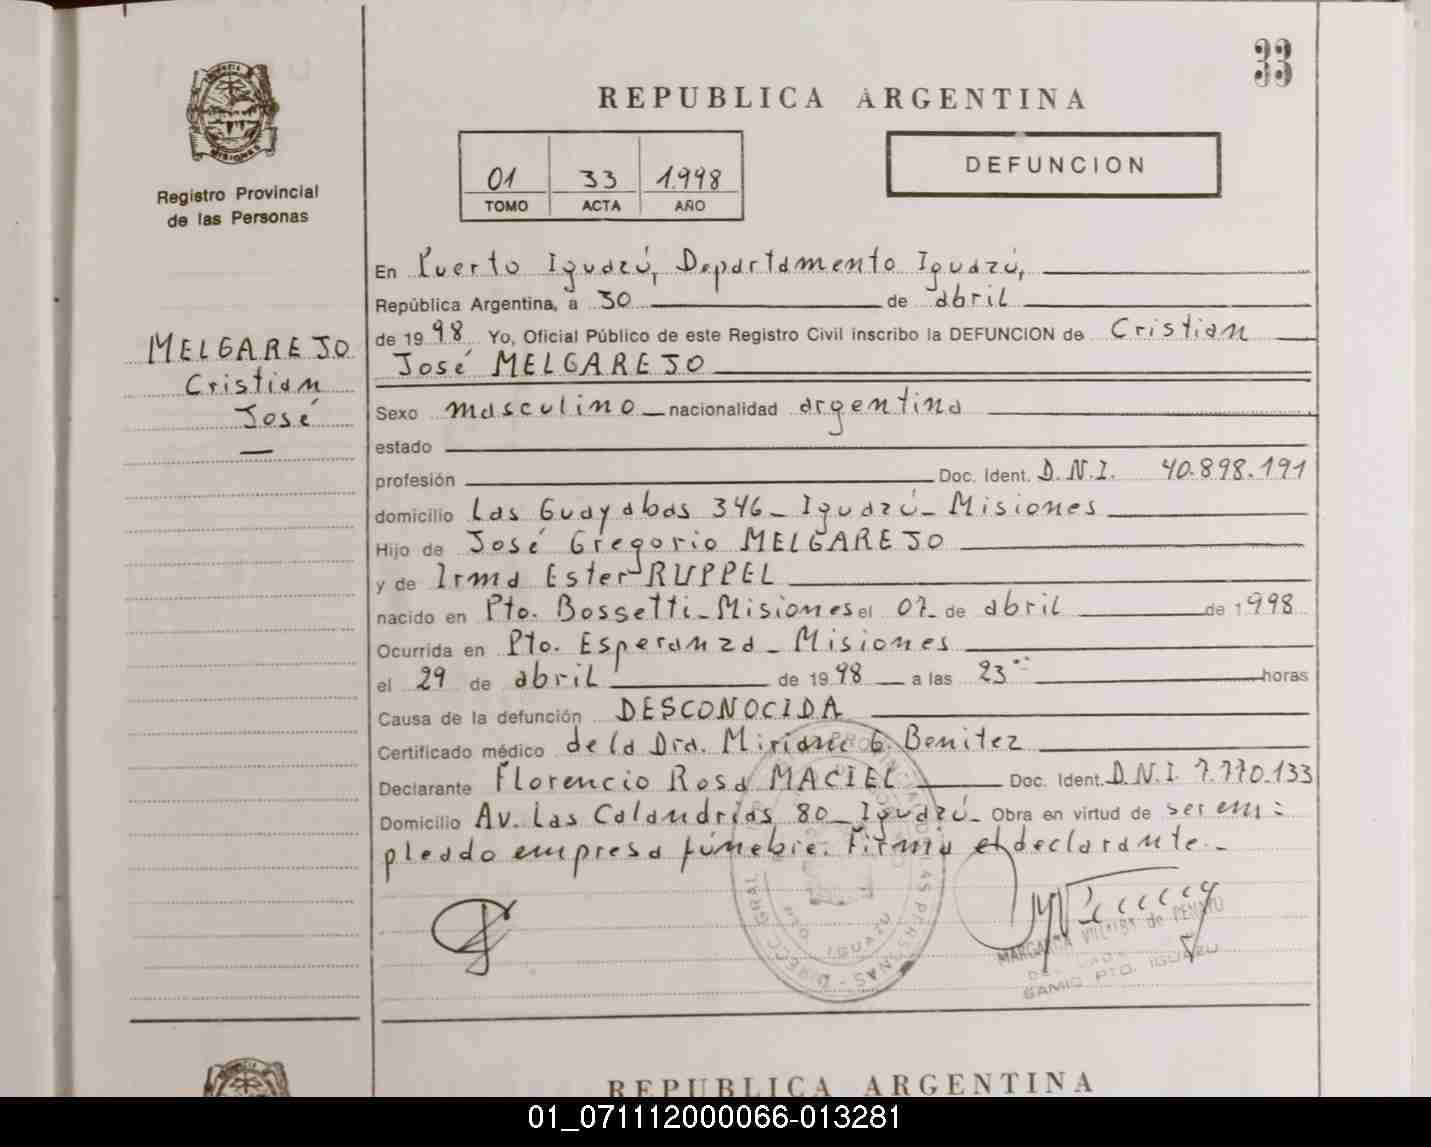 33
PROVINCIA
MISIONES
Registro Provincial
de las Personas
REPUBLICA ARGENTINA
01 33 1998
TOMO ACTA AÑO
DEFUNCION
MELGAREJO
Cristian
José
En Puerto Iguazú, Departamento Iguazú,
República Argentina, a 30 de abril
de 1998 Yo, Oficial Público de este Registro Civil inscribo la DEFUNCION de Cristian
José MELGAREJO
Sexo masculino nacionalidad argentina
estado
profesión Doc. Ident. D.N.I. 40.898.191
domicilio Las Guayabas 346_ Iguazú_ Misiones
Hijo de José Gregorio MELGAREJO
y de Irma Ester RUPPEL
nacido en Pto. Bossetti_Misiones el 07_ de abril de 1998
Ocurrida en Pto. Esperanza_ Misiones
el 29 de abril de 1998 a las 23 horas
Causa de la defunción DESCONOCIDA
Certificado médico de la Dra. Miriam G. Benitez
Declarante Florencio Rosa MACIEL Doc. Ident. D.N.I. 7.770.133
Domicilio Av. Las Calandrias 80_ Iguazú_ Obra en virtud de ser em=
pleado empresa fúnebre. Firma el declarante._
IGUAZU
MARGARITA de
PTO. IGUAZU
REPUBLICA ARGENTINA
01_071112000066-013281